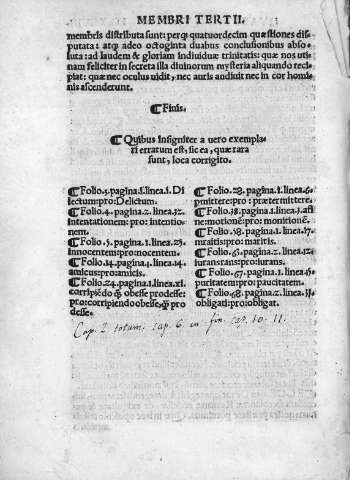 MEMBRI TERTII.
membris distributa sunt: perq; quatuordecim quæstiones dis
putata: atq; adeo octoginta duabus conclusionibus abso
luta: ad laudem & gloriam indiuiduæ trinitatis: quæ nos uti
nam feliciter in secreta illa diuinorum mysteria aliquando reci
piat: quæ nec oculus uidit, nec auris audiuit nec in cor homi
nis ascenderunt.
¶ Finis.
¶ Quibus insigniter a uero exempla
ri erratum est, sic ea, quæ rara
sunt, loca corrigito.
¶ Folio.3.pagina.1.linea.1. Di
lectum: pro: Delictum.
¶ Folio.4.pagina.2.linea.32.
intentationem: pro: intentio
nem.
¶ Folio.5.pagina.1.linea.25.
innocentem: pro: nocentem.
¶ Folio.14.pagina.4.linea.14.
amicus: pro: amicis.
¶ Folio.24.pagina.1.linea.xi.
corripiēdo ꝙ obesse prodesse:
pro: corripiendo obesse, ꝙ pro
desse.
¶ Folio.28.pagina.1.linea.6.
pmittere: pro: prætermittere.
¶ Folio.38.pagina.1.linea.3. aſti
ne: motione: pro: monitione.
¶ Folio.58.pagina.1.linea.17.
mraitis: pro: maritis.
¶ Folio.63.pagina.2.linea.12.
iurans: pro: iurans.
¶ Folio.67.pagina.1.linea.15.
puritatem: pro: paucitatem.
¶ Folio.68.pagina.2.linea.33.
obligati: pro: obligat.
Cap. 2 totum. cap. 6 in fin. cap. 10. 11.